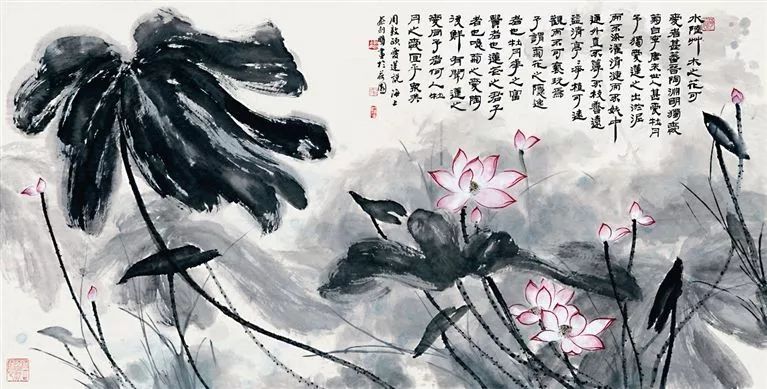 水陸艸木之花可
愛者甚蕃晉陶淵明獨愛
菊自李唐來世人甚愛牡丹
予獨愛蓮之出淤泥
而不染濯清漣而不妖中
通外直不蔓不枝香遠
益清亭亭淨植可遠
觀而不可褻玩焉
予謂菊花之隱逸
者也牡丹花之富
貴者也蓮花之君子
者也噫菊之愛陶
後鮮有聞蓮之
愛同予者何人牡
丹之愛宜乎眾矣
周敦頤愛蓮說 海上
書於園